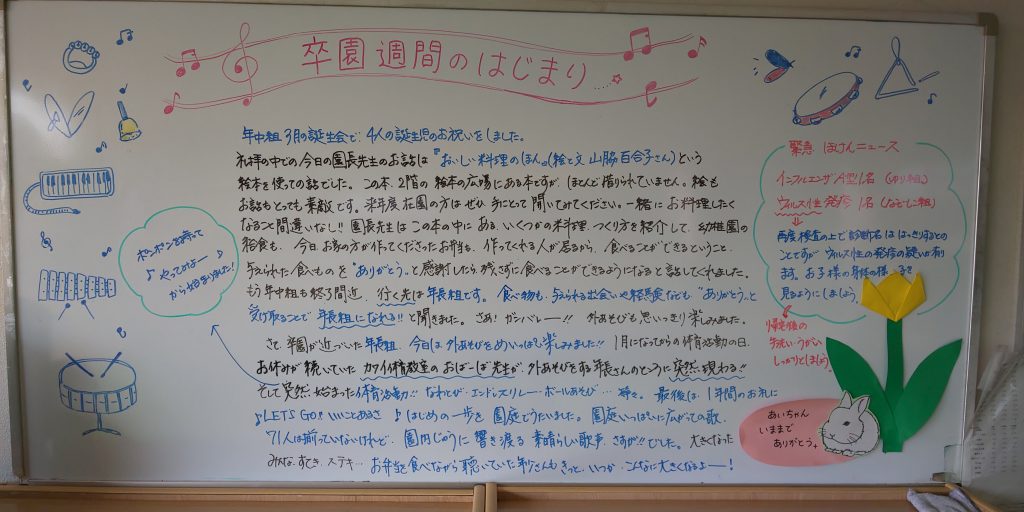 卒園週間のはじまり...
年中組3月の誕生会で、4人の誕生児のお祝いをしました。
礼拝の中での今日の園長先生のお話は『おいしい料理のほん』(絵と文 山脇百合子さん)という
絵本を使っての話でした。この本、2階の絵本の広場にある本ですが、ほとんど借りられていません。絵も
お話もとっても素敵です。来年度在園の方はぜひ手にとって開いてみてください。一緒にお料理したく
なること間違いなし!!園長先生はこの本の中にある、いくつかの料理、つくり方を紹介して、幼稚園の
給食も、今日お母の方が作ってくださったお弁当も、作ってくれる人が居るから、食べることができるということ、
与えられた食べものを"ありがとう"と感謝したら残さずに食べることができるようになると話してくれました。
もう年中組も終了間近、行く先は年長組です。食べ物も、与えられる出会いや経験なども"ありがとう"と
受け取ることで年長組になれる!!と聞きました。さぁ!ガンバレー!!外あそびも思いっきり楽しみました。
さて、卒園が近づいた年長組、今日は外あそびをめいっぱい楽しみました!!1月になってからの体育活動の日、
お休みが続いていたカワイ体育教室のおばーば先生が、外あそびをする年長さんのところに突然現れる!!
そして突然始まった体育活動!!なわとび・エンドレスリレー・ボールあそび…等々。最後は、1年間のお礼に
♪LET'S GO!いいことあるさ ♪はじめの一歩を園庭でうたいました。園庭いっぱいに広がっての歌、
71人は揃っていないけれど、園内じゅうに響き渡る素晴らしい歌声、さすが!!でした。大きくなった
みんな、すてき、ステキ…お弁当を食べながら聴いていた年少さんもきっと、いつかこんなに大きくなるよー!
ポンポンを持って
♪やってみよー♪
から始まりました!
緊急 ほけんニュース
インフルエンザA型1名(ゆり組)
ウィルス性発疹1名(なでしこ組)
再度検査の上で診断名ははっきりするとの
ことですがウィルス性の発疹の疑いが有り
ます。お子様の身体の様子を
見るようにしましょう。
帰宅後の
手洗いうがい
しっかりとしましょう。
あいちゃん
いままで
ありがとう